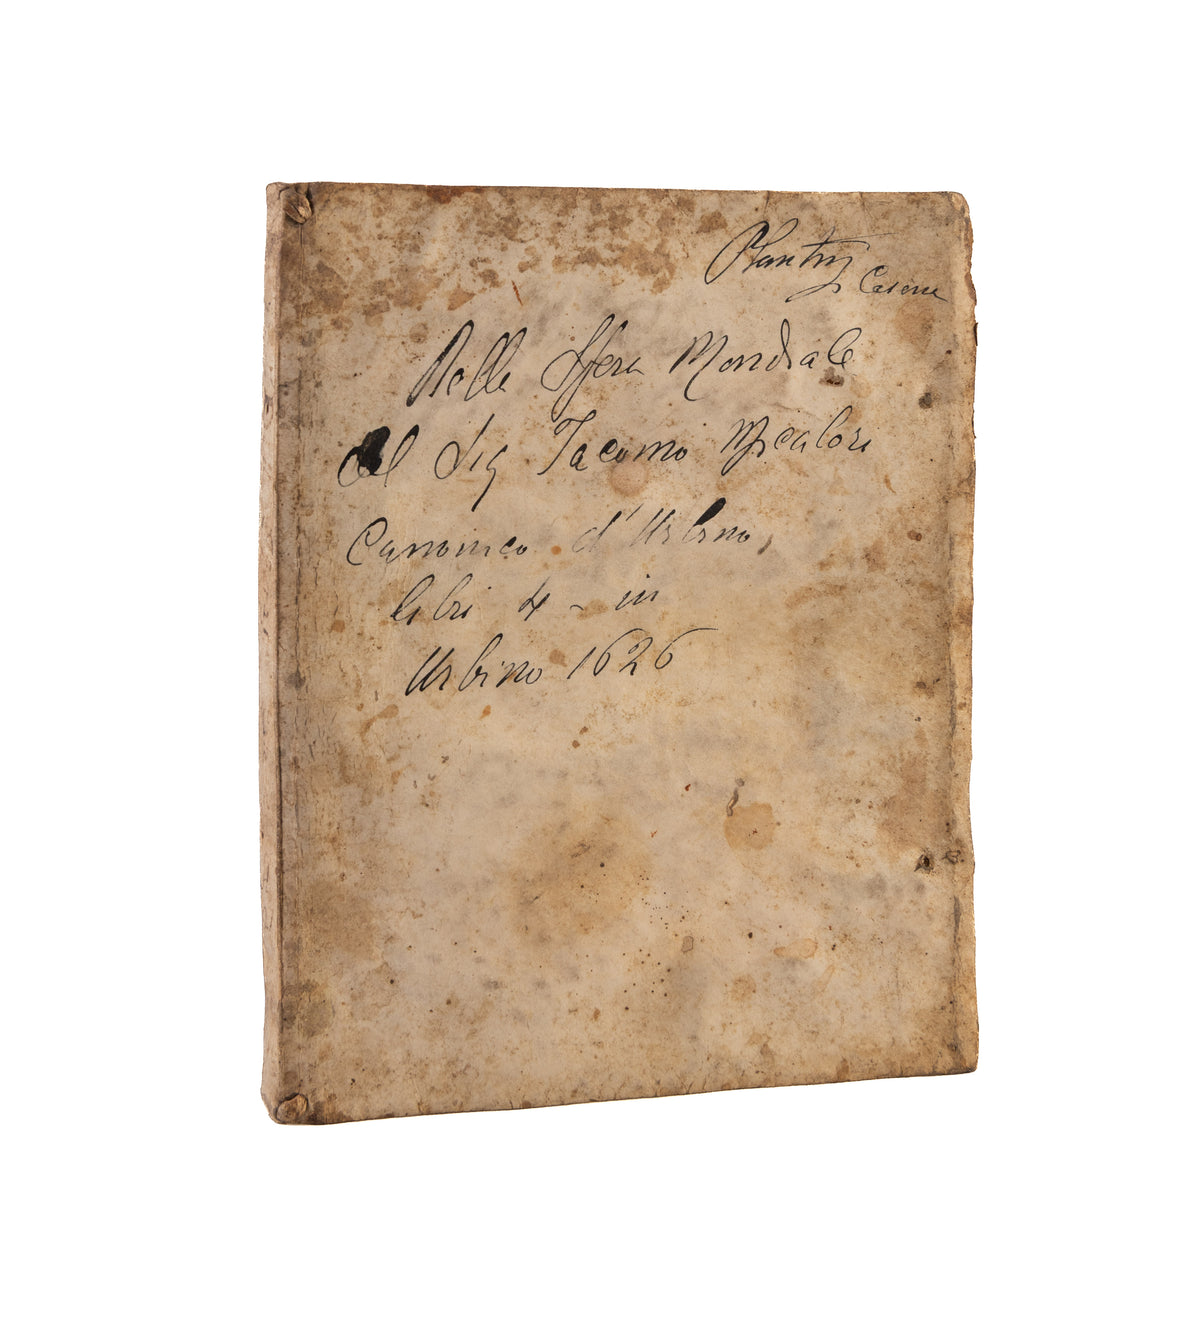 Della Sfera Mondiale
del Sig Iacomo Micalori
Canonico d'Urbino,
libri 4 - in
Urbino 1626